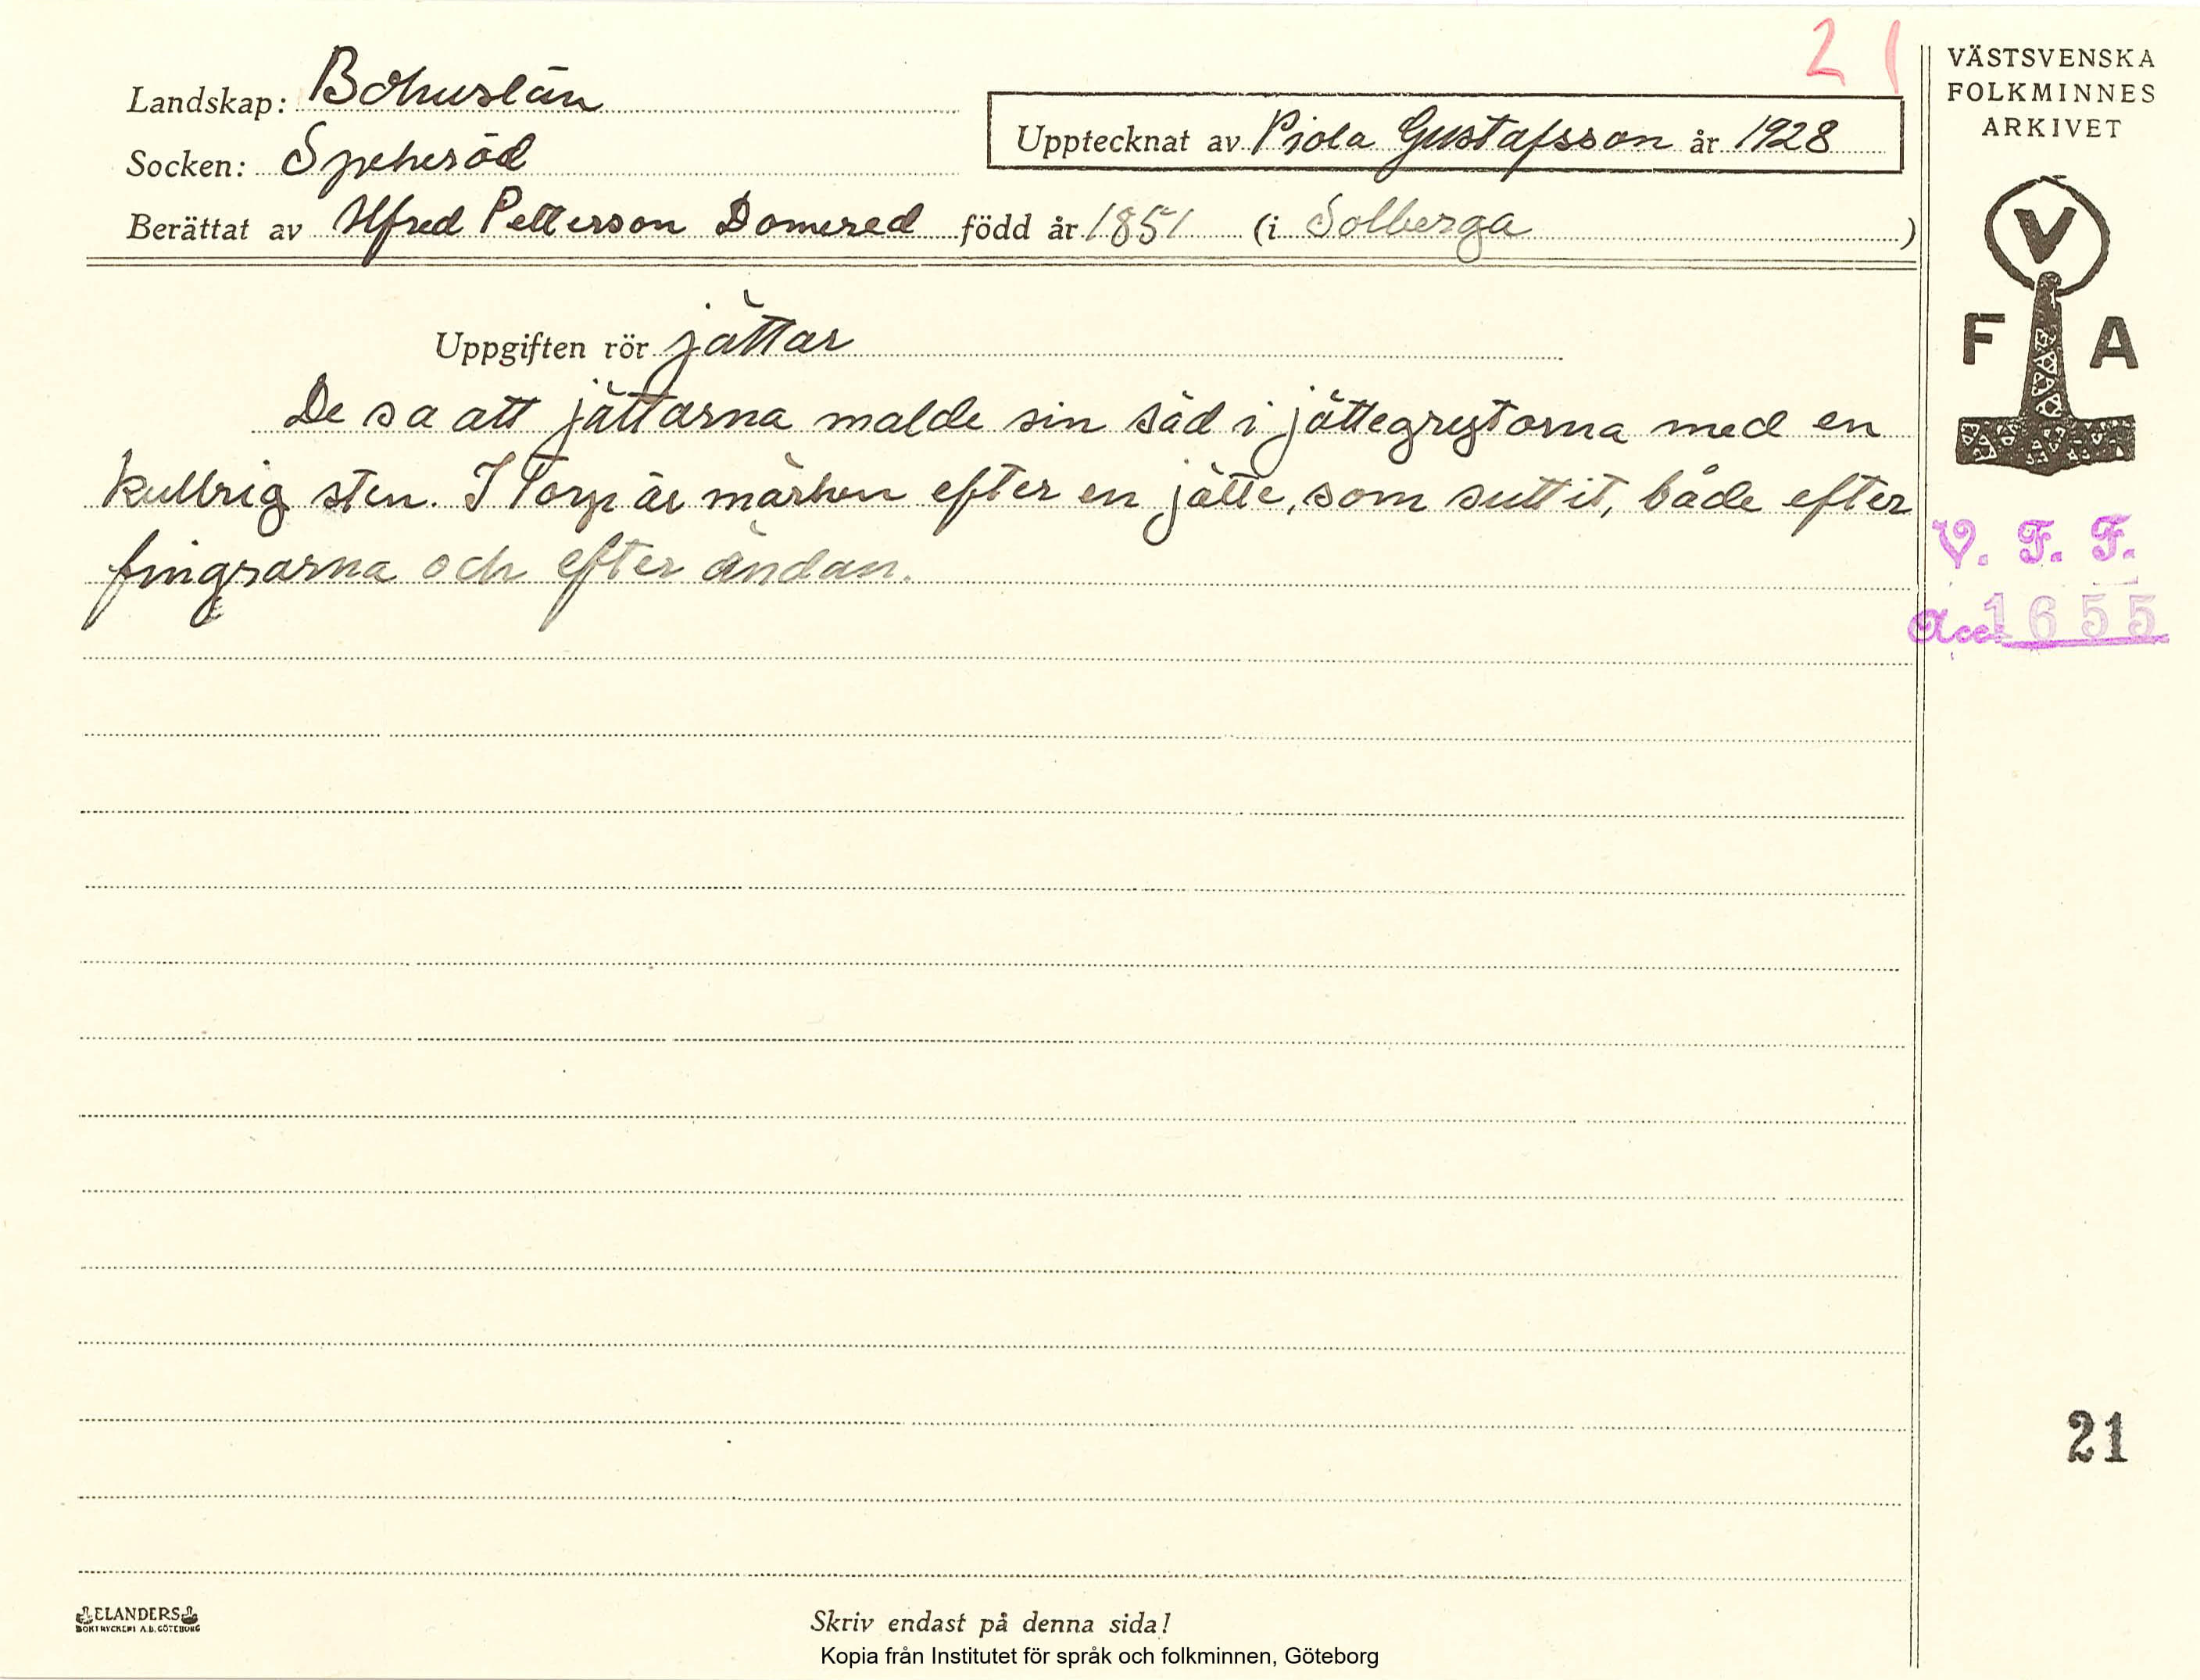 21
Landskap: Bohuslän
Upptecknat av Viola Gustafsson år 1928
Socken: Spekeröd
Berättat av Alfred Petterson Domered född år 1851 (i Solberga)
Uppgiften rör jättar
De sa att jättarna malde sin säd i jättegrytorna med en
kullrig sten. I Torp är märken efter en jätte, som suttit, både efter
fingrarna och efter ändan.
VÄSTSVENSKA
FOLKMINNES
ARKIVET
V
F A
V. F. F.
Acc. 1655
21
ELANDERS
BOKTRYCKERI A.B. GÖTEBORG
Skriv endast på denna sida!
Kopia från Institutet för språk och folkminnen, Göteborg